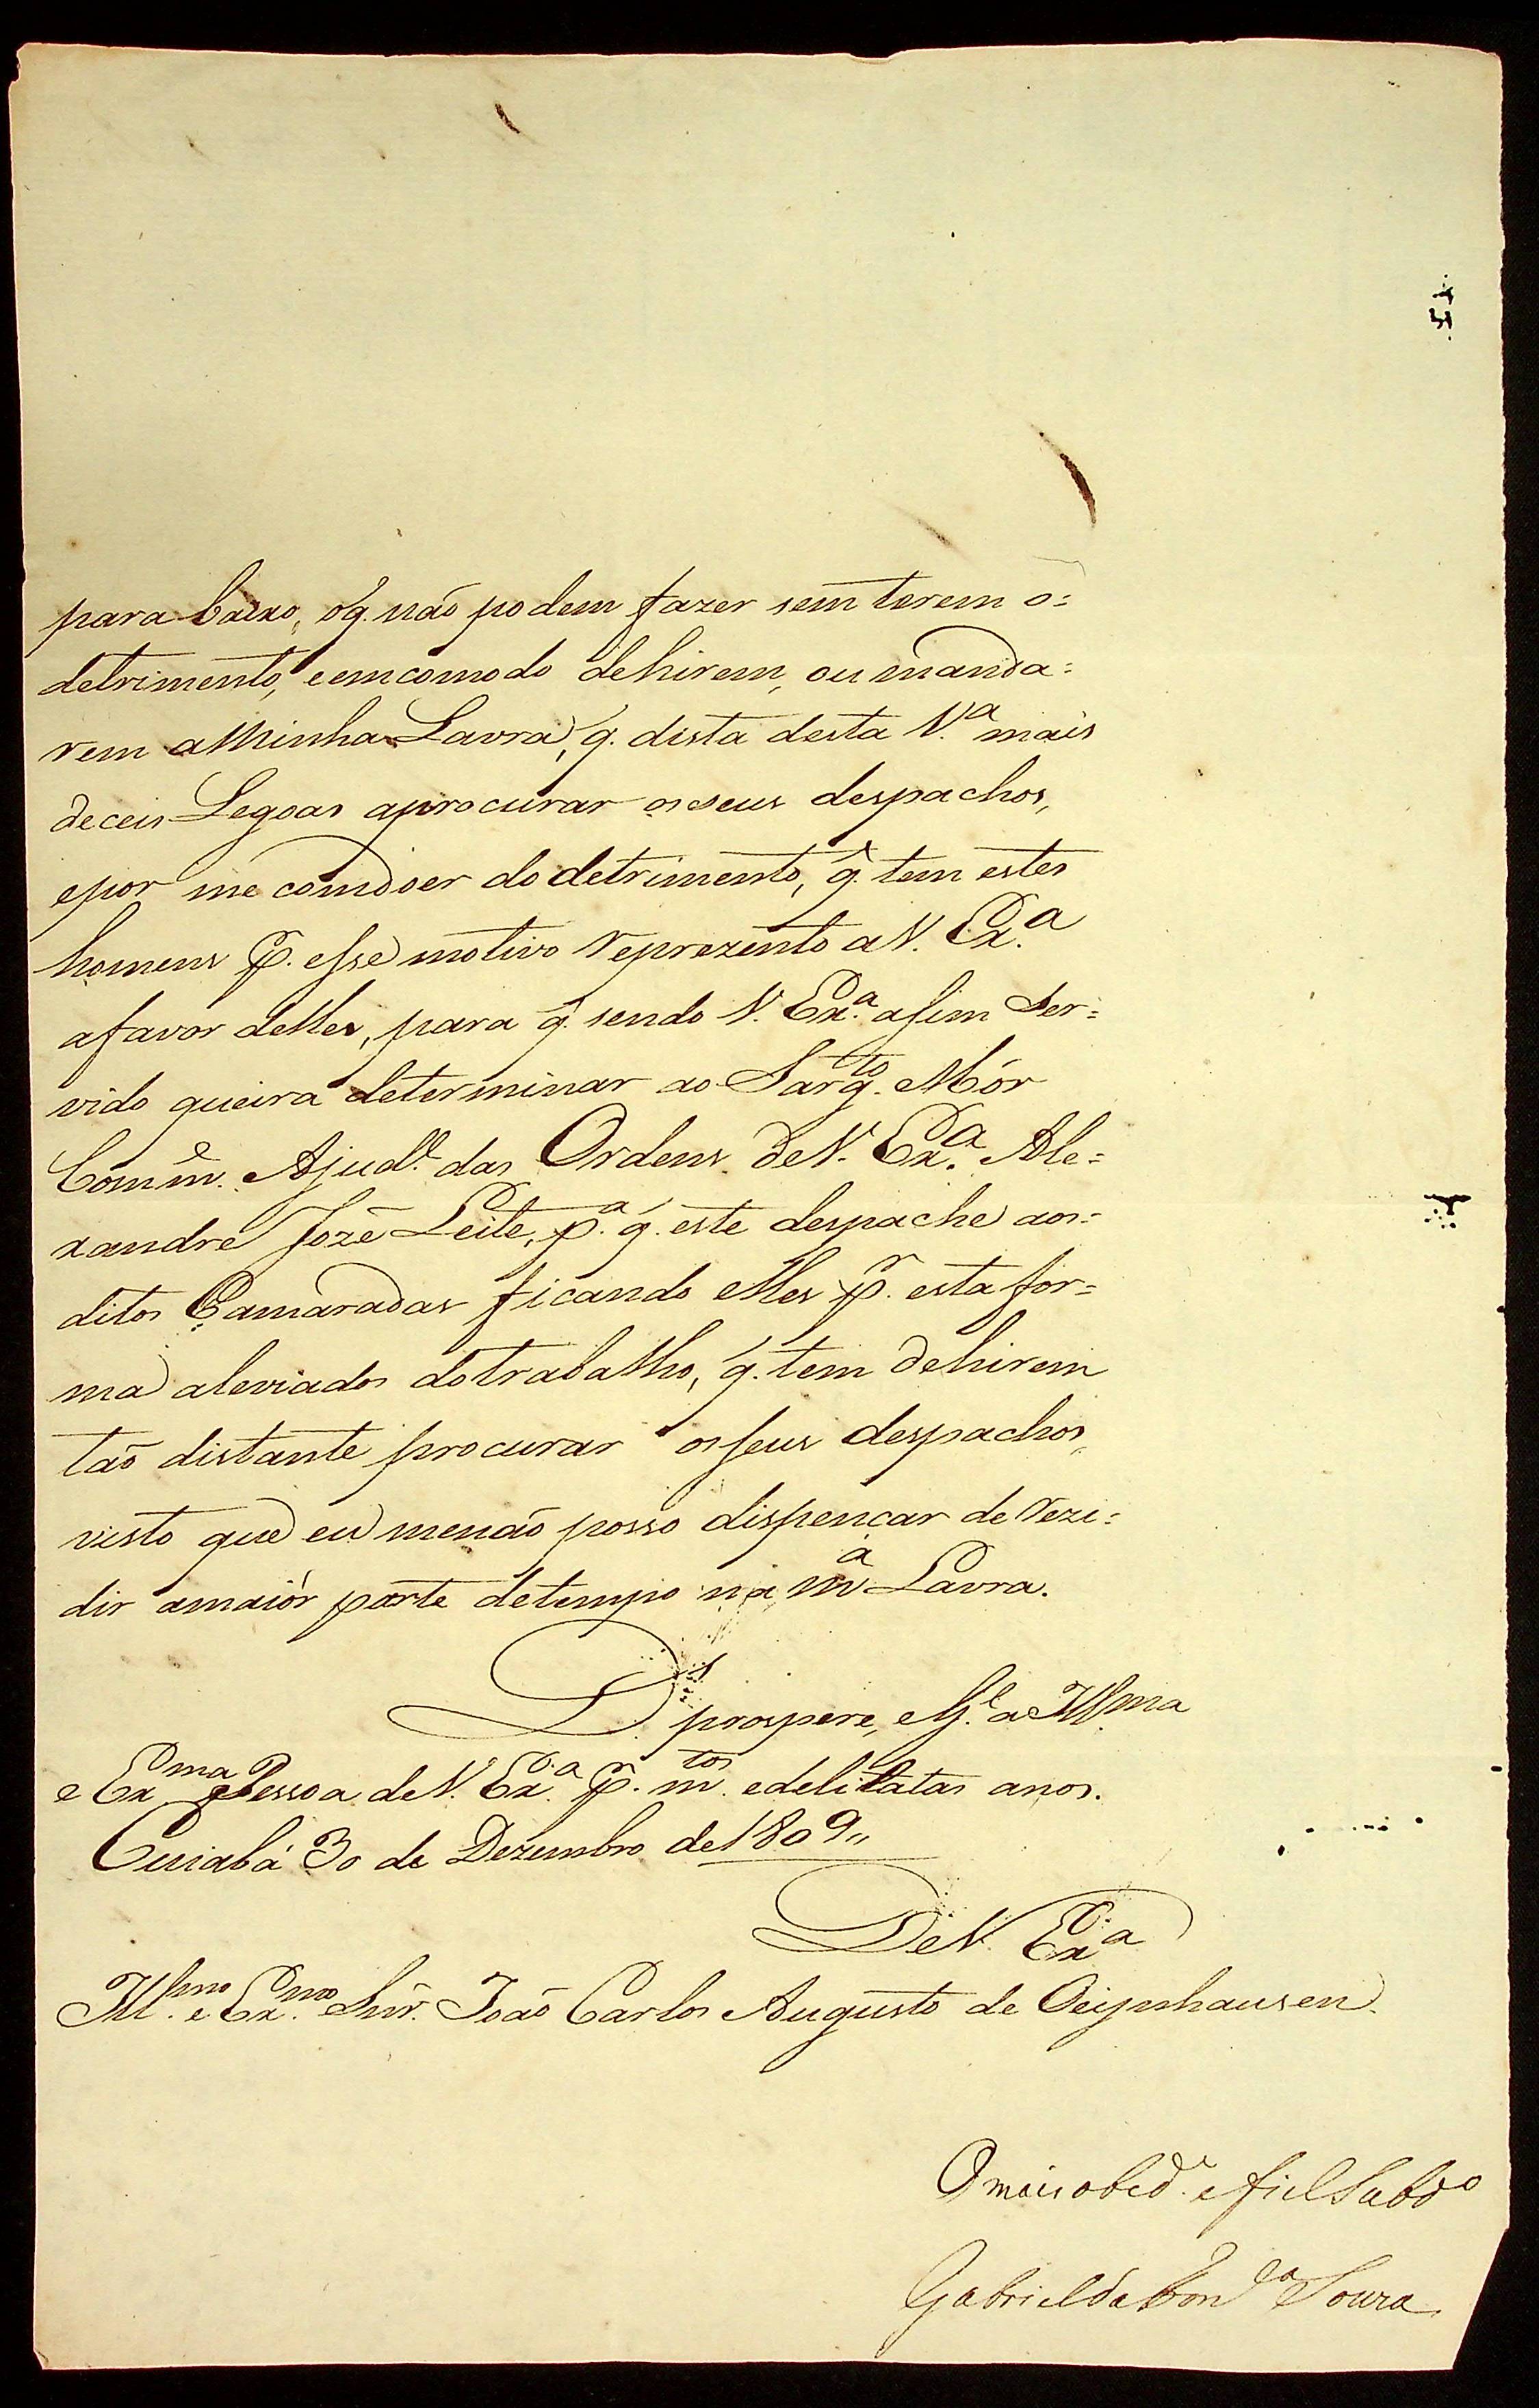 para baixo, oq. não podem fazer sem terem o=
detrimento, eemcomodo dehirem, ou manda=
rem aMinha Lavra, q. dista desta V.ª mais
deceis Legoas aprocurar os seus despachos,
epor me comdoer do detrimento, q. tem estes
homens p.r esse motivo reprezento aV. Ex.ª
afavor delles, para q. sendo V. Ex.ª asim Ser=
vido queira determinar ao Sarg.to Mór
Comm.e Ajud.e das Ordens deV. Ex.ª Ale=
xandre Jozé Leite, p.ª q. este despache aos=
ditos Camaradas ficando elles p.r esta for=
ma aleviados dotrabalho, q. tem dehirem
tão distante procurar os seus despachos,
visto que eu menaõ posso dispençar de rezi=
dir amaiór parte detempo na m.ª Lavra.
D.s prospere, eG.e a Ill.ma
e Ex.ma Pessoa deV. Ex.ª p.r m.tos edelitatas anos.
Cuiabá 30 de Dezembro de1809,,
DeV. Ex.ª
Ill.mo e Ex.mo Snr. João Carlos Augusto de Oeijnhausen.
Omais obed.e efiel Subd.o
Gabriel da Fon.ca Souza